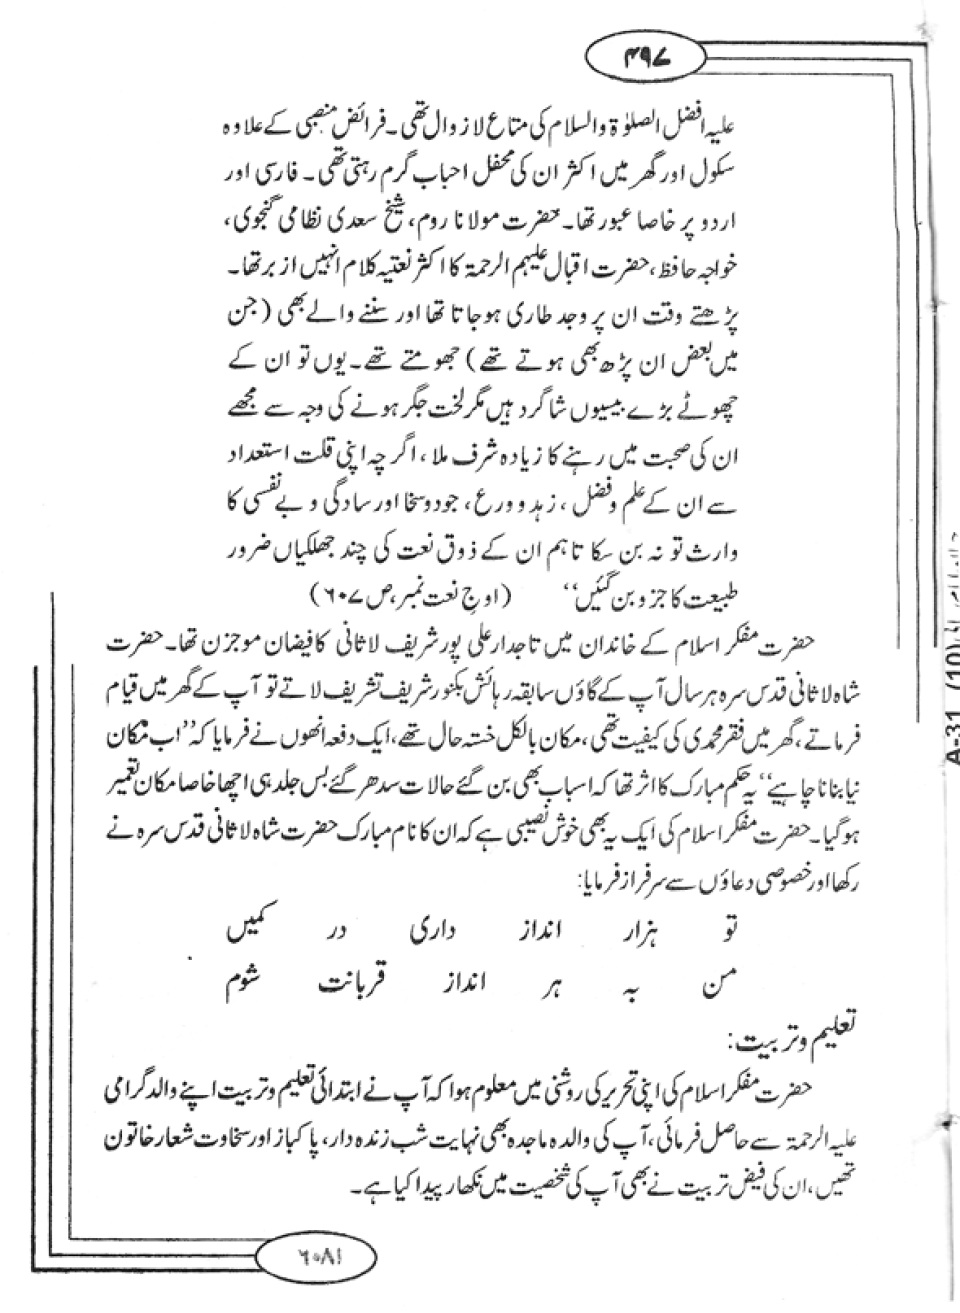 ۴۹۷
علیہ افضل الصلوٰۃ والسلام کی متاع لازوال تھی۔ فرائض منصبی کے علاوہ
سکول اور گھر میں اکثر ان کی محفل احباب گرم رہتی تھی۔ فارسی اور
اردو پر خاصا عبور تھا۔ حضرت مولانا روم، شیخ سعدی نظامی گنجوی،
خواجہ حافظ، حضرت اقبال علیہم الرحمۃ کا اکثر نعتیہ کلام انہیں ازبر تھا۔
پڑھتے وقت ان پر وجد طاری ہو جاتا تھا اور سننے والے بھی (جن
میں بعض ان پڑھ بھی ہوتے تھے) جھومتے تھے۔ یوں تو ان کے
چھوٹے بڑے بیسیوں شاگرد ہیں مگر لخت جگر ہونے کی وجہ سے مجھے
ان کی صحبت میں رہنے کا زیادہ شرف ملا، اگرچہ اپنی قلت استعداد
سے ان کے علم و فضل، زہد و ورع، جود و سخا اور سادگی و بے نفسی کا
وارث تو نہ بن سکا تاہم ان کے ذوق نعت کی چند جھلکیاں ضرور
طبیعت کا جزو بن گئیں‘‘ (اوج نعت نمبر، ص ۶۰۷)
حضرت مفکر اسلام کے خاندان میں تاجدار علی پور شریف لاثانی کا فیضان موجزن تھا۔ حضرت
شاہ لاثانی قدس سرہ ہر سال آپ کے گاؤں سابقہ رہائش بکنور شریف تشریف لاتے تو آپ کے گھر میں قیام
فرماتے، گھر میں فقر محمدی کی کیفیت تھی، مکان بالکل خستہ حال تھے، ایک دفعہ انھوں نے فرمایا کہ ’’اب مکان
نیا بنانا چاہیے‘‘ یہ حکم مبارک کا اثر تھا کہ اسباب بھی بن گئے حالات سدھر گئے بس جلد ہی اچھا خاصا مکان تعمیر
ہو گیا۔ حضرت مفکر اسلام کی ایک یہ بھی خوش نصیبی ہے کہ ان کا نام مبارک حضرت شاہ لاثانی قدس سرہ نے
رکھا اور خصوصی دعاؤں سے سرفراز فرمایا:
تو ہزار انداز داری در کمیں
من بہ ہر انداز قربانت شوم
تعلیم و تربیت:
حضرت مفکر اسلام کی اپنی تحریر کی روشنی میں معلوم ہوا کہ آپ نے ابتدائی تعلیم و تربیت اپنے والد گرامی
علیہ الرحمۃ سے حاصل فرمائی، آپ کی والدہ ماجدہ بھی نہایت شب زندہ دار، پاکباز اور سخاوت شعار خاتون
تھیں، ان کی فیض تربیت نے بھی آپ کی شخصیت میں نکھار پیدا کیا ہے۔
۶۰۸۱
A-31 (10)